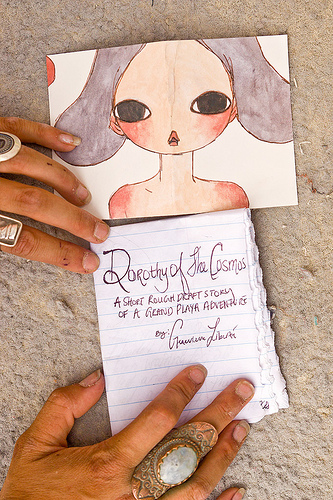 Dorothy of The Cosmos
A SHORT ROUGH DRAFT STORY
OF A GRAND PLAYA ADVENTURE
By: